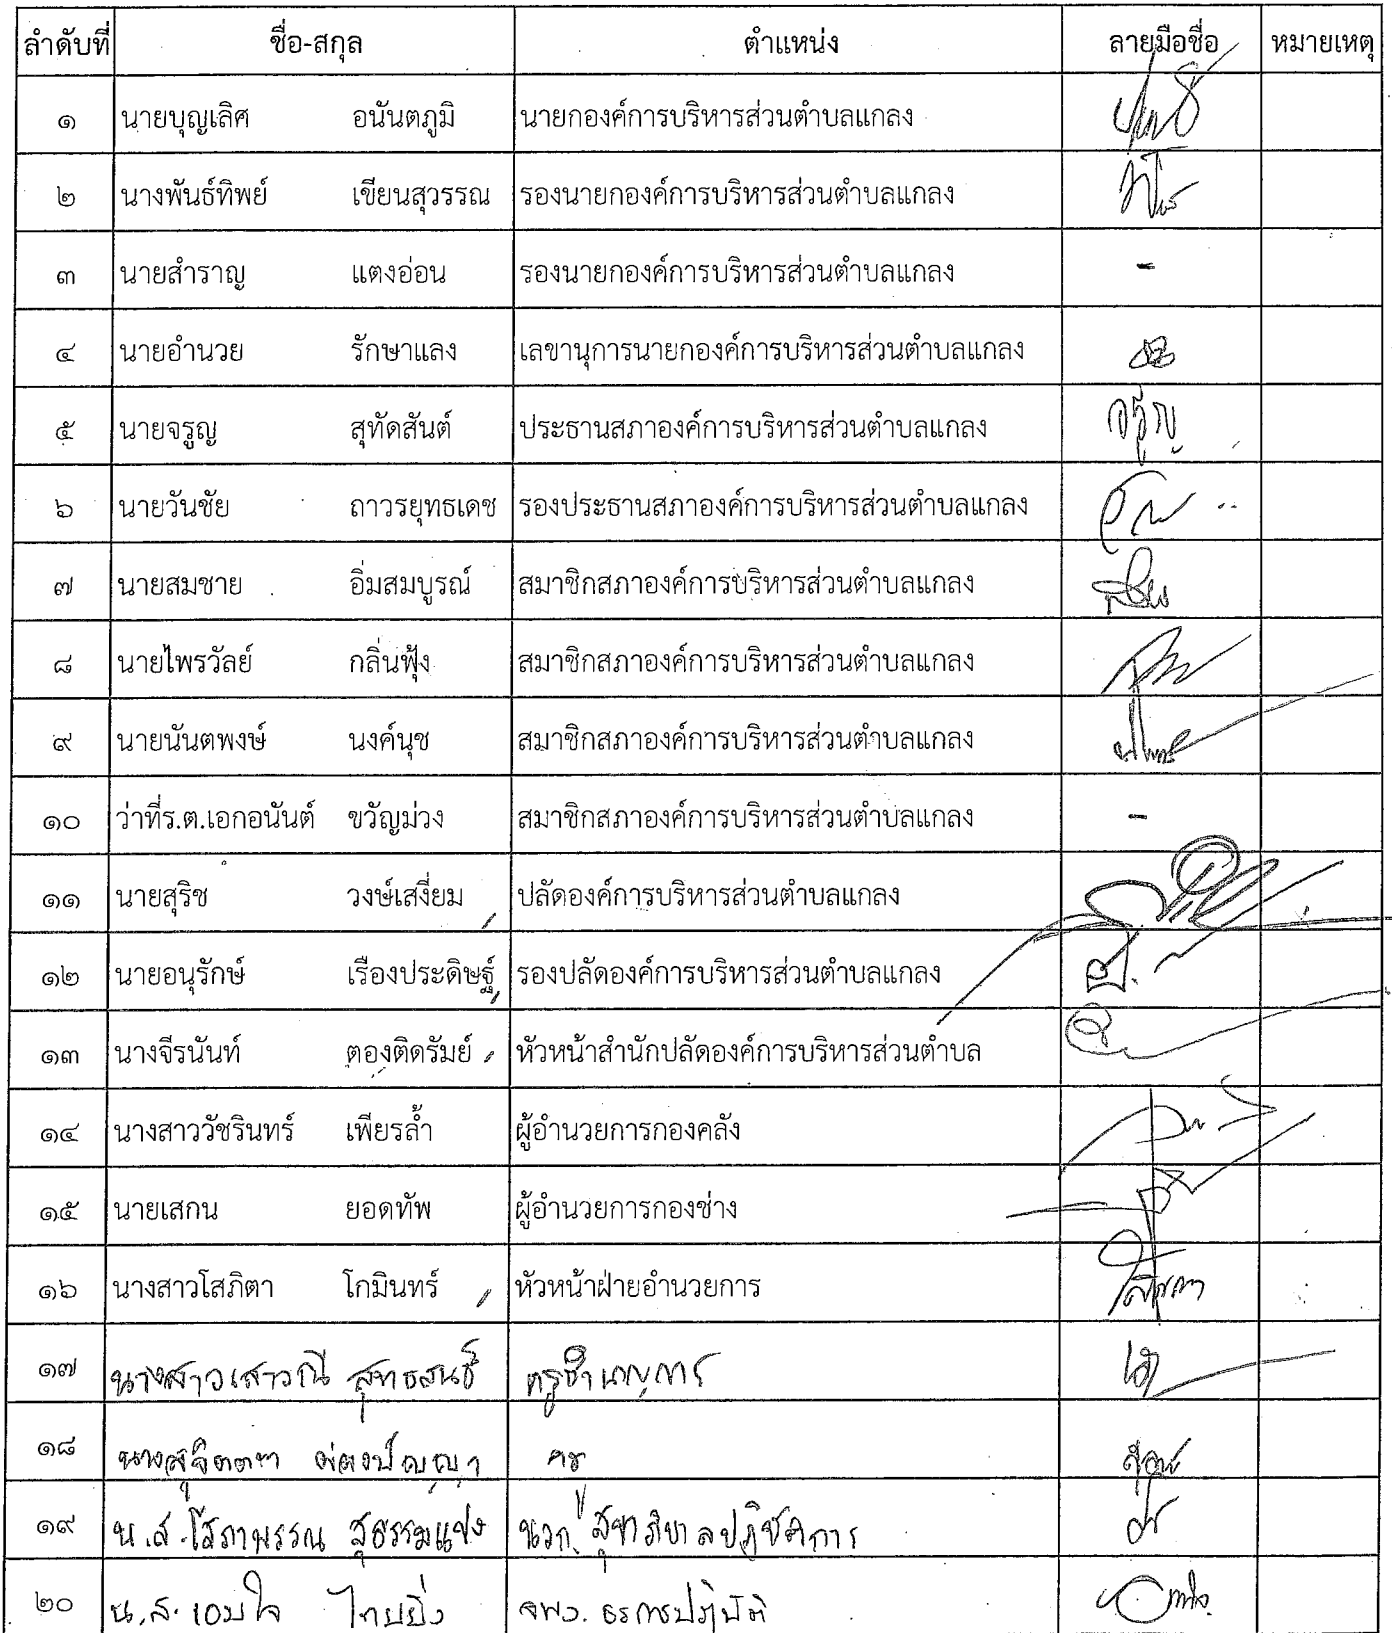 ลำดับที่ ชื่อ-สกุล ตำแหน่ง ลายมือชื่อ หมายเหตุ
๑ นายบุญเลิศ อนันตภูมิ นายกองค์การบริหารส่วนตำบลแกลง
๒ นางพันธ์ทิพย์ เขียนสุวรรณ รองนายกองค์การบริหารส่วนตำบลแกลง
๓ นายสำราญ แตงอ่อน รองนายกองค์การบริหารส่วนตำบลแกลง -
๔ นายอำนวย รักษาแลง เลขานุการนายกองค์การบริหารส่วนตำบลแกลง
๕ นายจรูญ สุทัดสันต์ ประธานสภาองค์การบริหารส่วนตำบลแกลง จรูญ
๖ นายวันชัย ถาวรยุทธเดช รองประธานสภาองค์การบริหารส่วนตำบลแกลง
๗ นายสมชาย อิ่มสมบูรณ์ สมาชิกสภาองค์การบริหารส่วนตำบลแกลง
๘ นายไพรวัลย์ กลิ่นฟุ้ง สมาชิกสภาองค์การบริหารส่วนตำบลแกลง
๙ นายนันตพงษ์ นงค์นุช สมาชิกสภาองค์การบริหารส่วนตำบลแกลง
๑๐ ว่าที่ร.ต.เอกอนันต์ ขวัญม่วง สมาชิกสภาองค์การบริหารส่วนตำบลแกลง -
๑๑ นายสุริช วงษ์เสงี่ยม ปลัดองค์การบริหารส่วนตำบลแกลง
๑๒ นายอนุรักษ์ เรืองประดิษฐ์ รองปลัดองค์การบริหารส่วนตำบลแกลง
๑๓ นางจีรนันท์ ตองติดรัมย์ หัวหน้าสำนักปลัดองค์การบริหารส่วนตำบล
๑๔ นางสาววัชรินทร์ เพียรล้ำ ผู้อำนวยการกองคลัง
๑๕ นายเสกน ยอดทัพ ผู้อำนวยการกองช่าง
๑๖ นางสาวโสภิตา โกมินทร์ หัวหน้าฝ่ายอำนวยการ โสภิตา
๑๗ นางสาวเสาวณี สุทธสนธิ์ ครูชำนาญการ
๑๘ นางสุจิตตรา ครู
๑๙ น.ส.โสภาพรรณ สุธรรมแปง นวก.สุขาภิบาลปฏิบัติการ
๒๐ น.ส.เอมใจ ไทยยิ่ง จพง.ธุรการปฏิบัติ